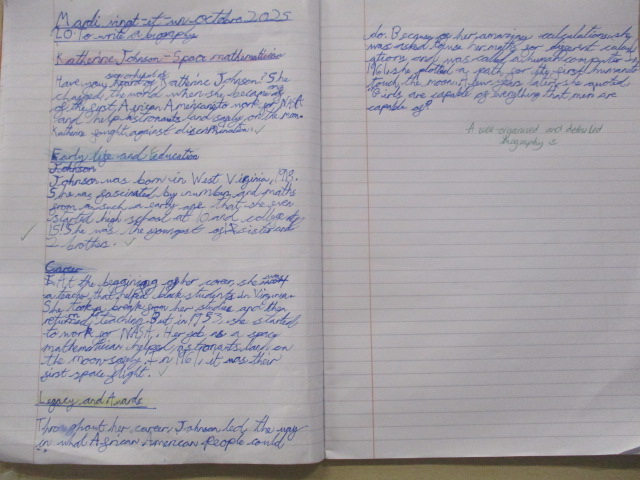 Mardi vingt-et-un octobre 2025
LO: To write a biography
Katherine Johnson - Space mathematician
Have you heard of Katherine Johnson? She
changed the world when she became one
of the first African Americans to work for NASA
and help astronauts land safely on the moon.
Katherine fought against discrimination.
Early life and Education
Johnson
Johnson was born in West Virginia, 1918.
She was fascinated by numbers and maths
from a such a early age that she even
started high school at 10 and college at
15! She was the youngest of sister and
2 brothers.
Career
At the beggining of her career, she was
a teacher that helped black students in Virginia.
She took a break from her studies and then
returned teaching. But in 1953, she started
to work for NASA. Her job as a space
mathematician helped astronauts land on
the moon safely in 1961, it was their
first space flight.
Legacy and Awards
Throughout her career, Johnson led the way
in what African American people could
do. Because of her amazing calculations, she
was asked to use her maths for different calcul
ations and was called a human computer. In
1961 she plotted a path for the first humans to
touch the moon. years later she quoted
"Girls are capable of everything that men are
capable of"
A well-organised and detailed
biography